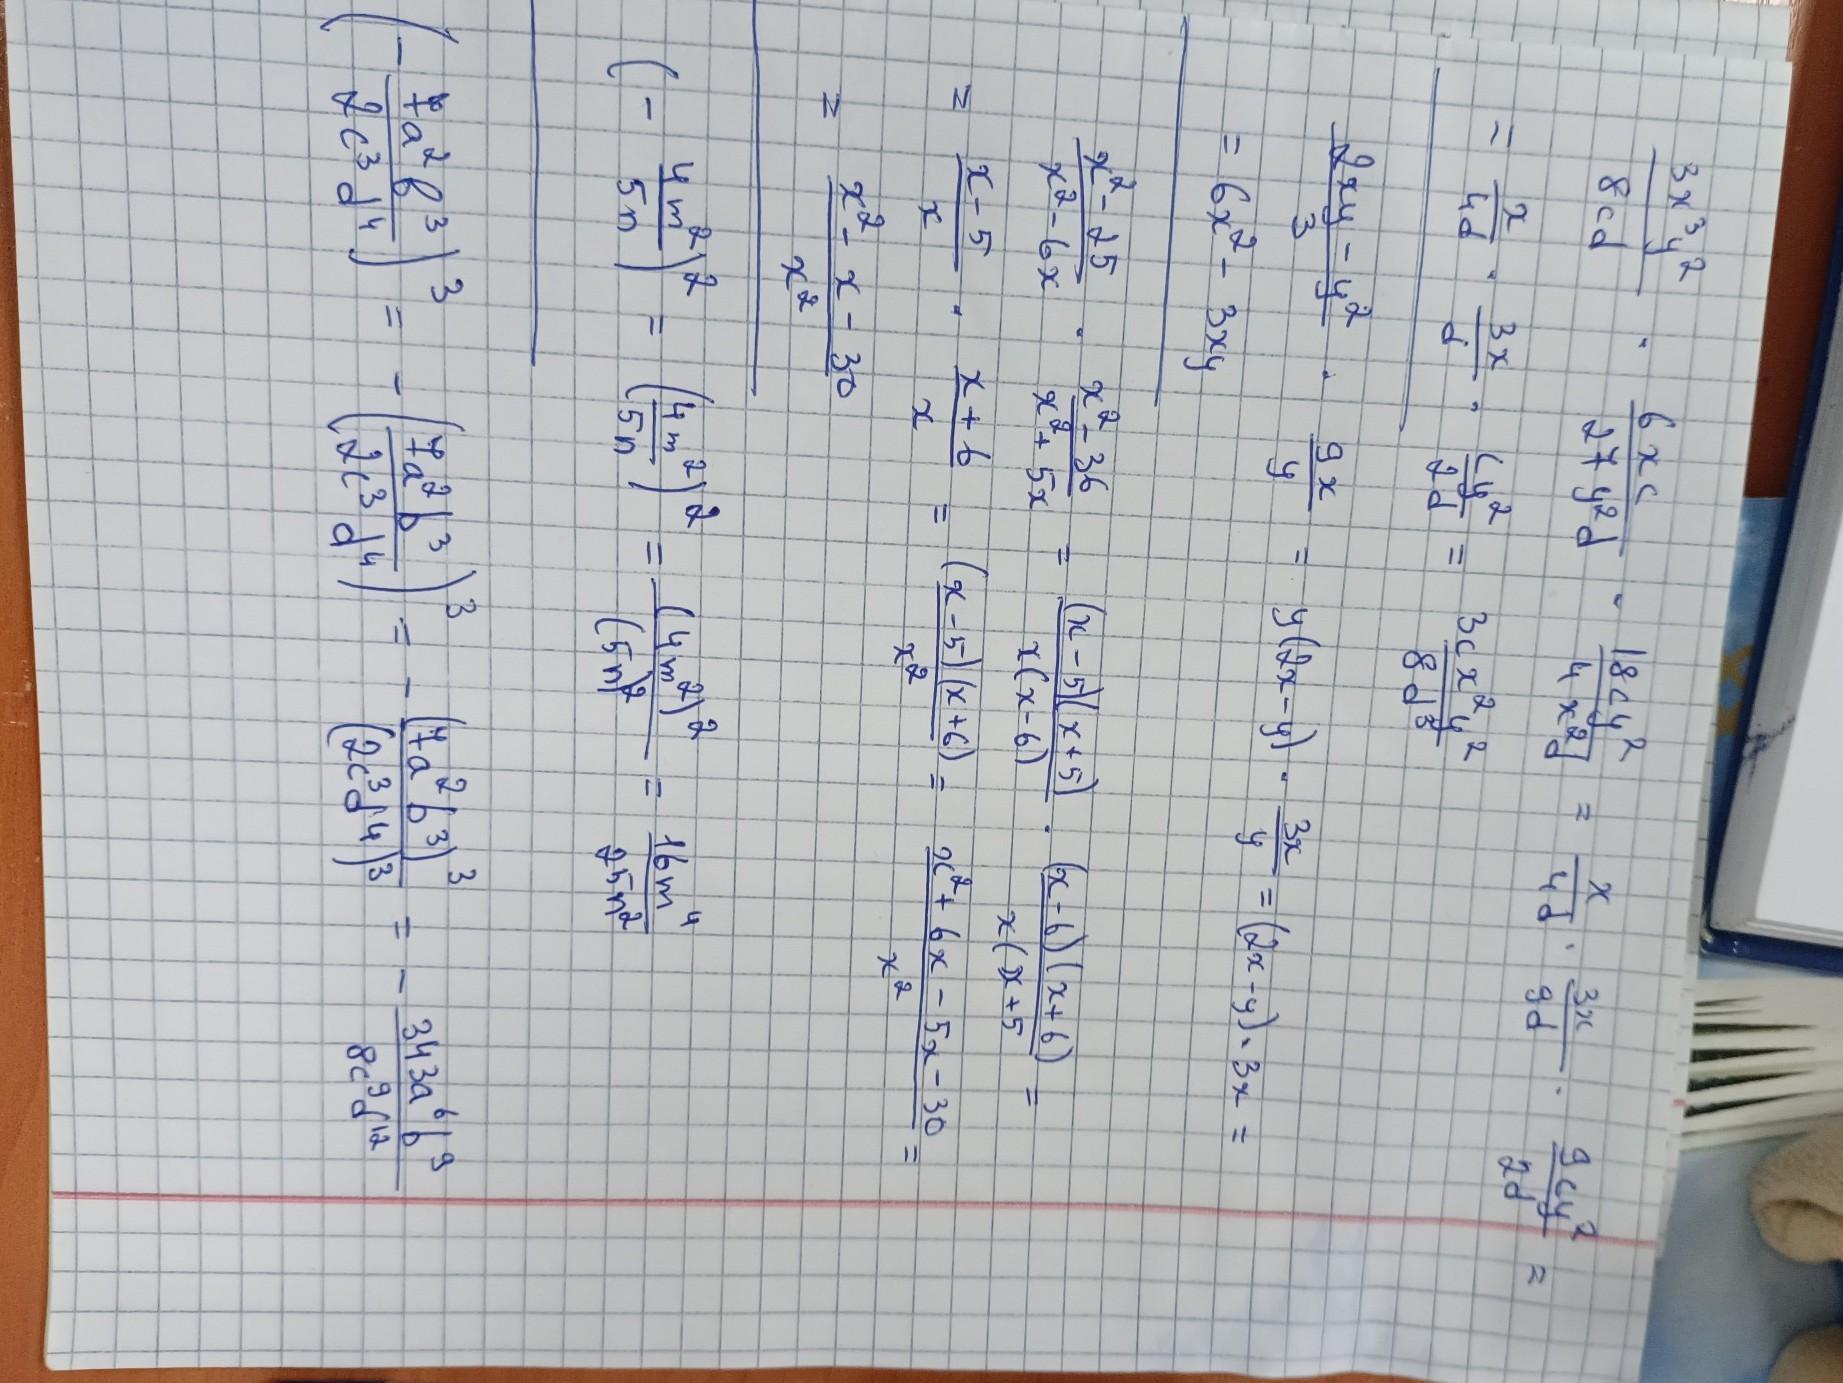 3x³y²/8cd · 6xc/27y²d · 18cy²/4x²d = x/4d · 3x/9d · 9cy²/2d =
= x/4d · 3x/d · cy²/2d = 3cx²y²/8d³
2xy - y²/3 · 9x/y = y(2x-y) · 3x/y = (2x-y)·3x =
= 6x² - 3xy
x²-25/x²-6x · x²-36/x²+5x = (x-5)(x+5)/x(x-6) · (x-6)(x+6)/x(x+5 =
= x-5/x · x+6/x = (x-5)(x+6)/x² = x²+6x-5x-30/x² =
= x²-x-30/x²
(- 4m²/5n)² = (4m²/5n)² = (4m²)²/(5n)² = 16m⁴/25n²
(- 7a²b³/2c³d⁴)³ = - (7a²b³/2c³d⁴)³ = - (7a²b³)³/(2c³d⁴)³ = - 343a⁶b⁹/8c⁹d¹²